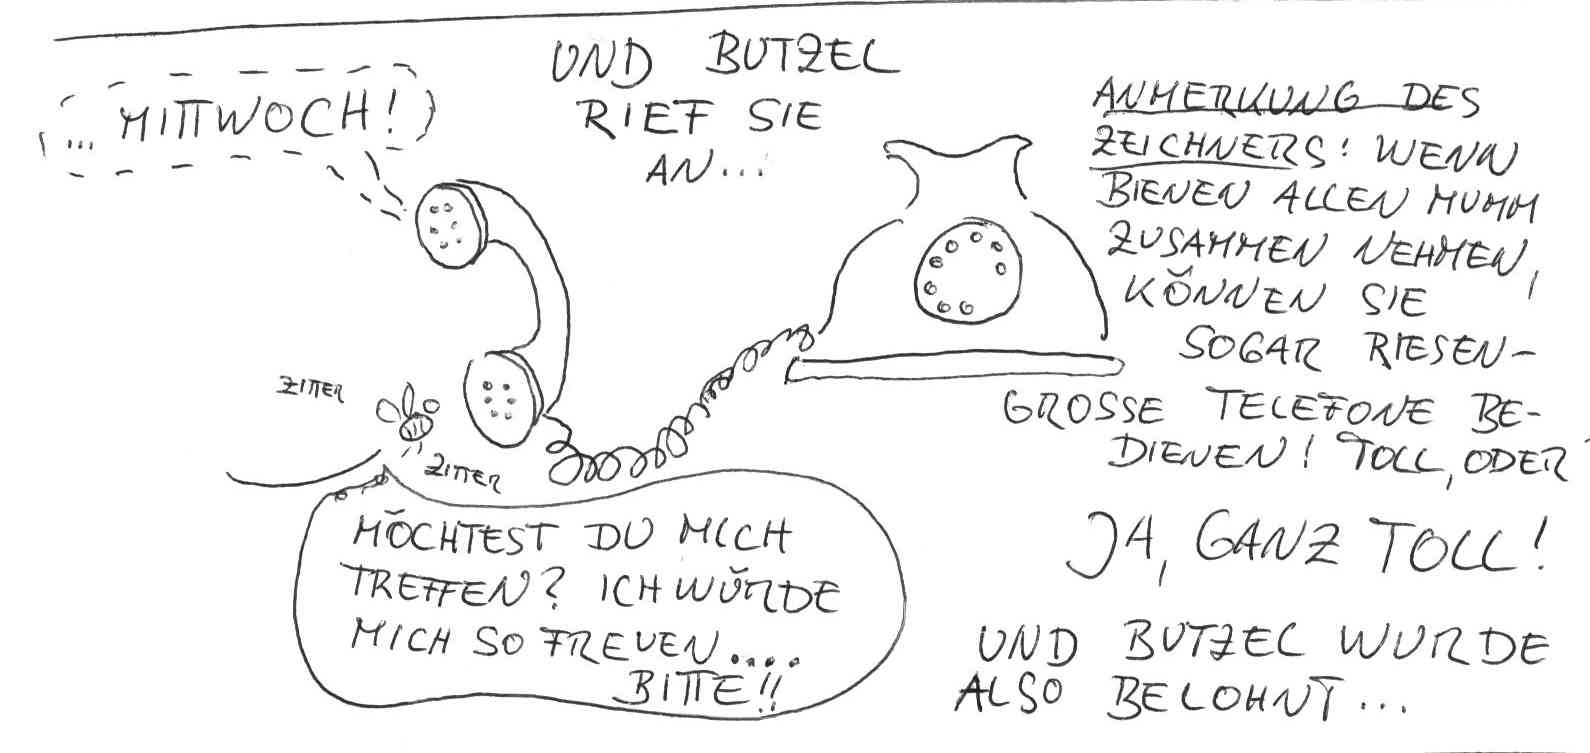 UND BUTZEL
RIEF SIE
AN...
... MITTWOCH!
ZITTER
ZITTER
MÖCHTEST DU MICH
TREFFEN? ICH WÜRDE
MICH SO FREUEN....
BITTE!!
ANMERKUNG DES
ZEICHNERS: WENN
BIENEN ALLEN MUMM
ZUSAMMEN NEHMEN,
KÖNNEN SIE
SOGAR RIESEN-
GROSSE TELEFONE BE-
DIENEN! TOLL, ODER
JA, GANZ TOLL!
UND BUTZEL WURDE
ALSO BELOHNT...